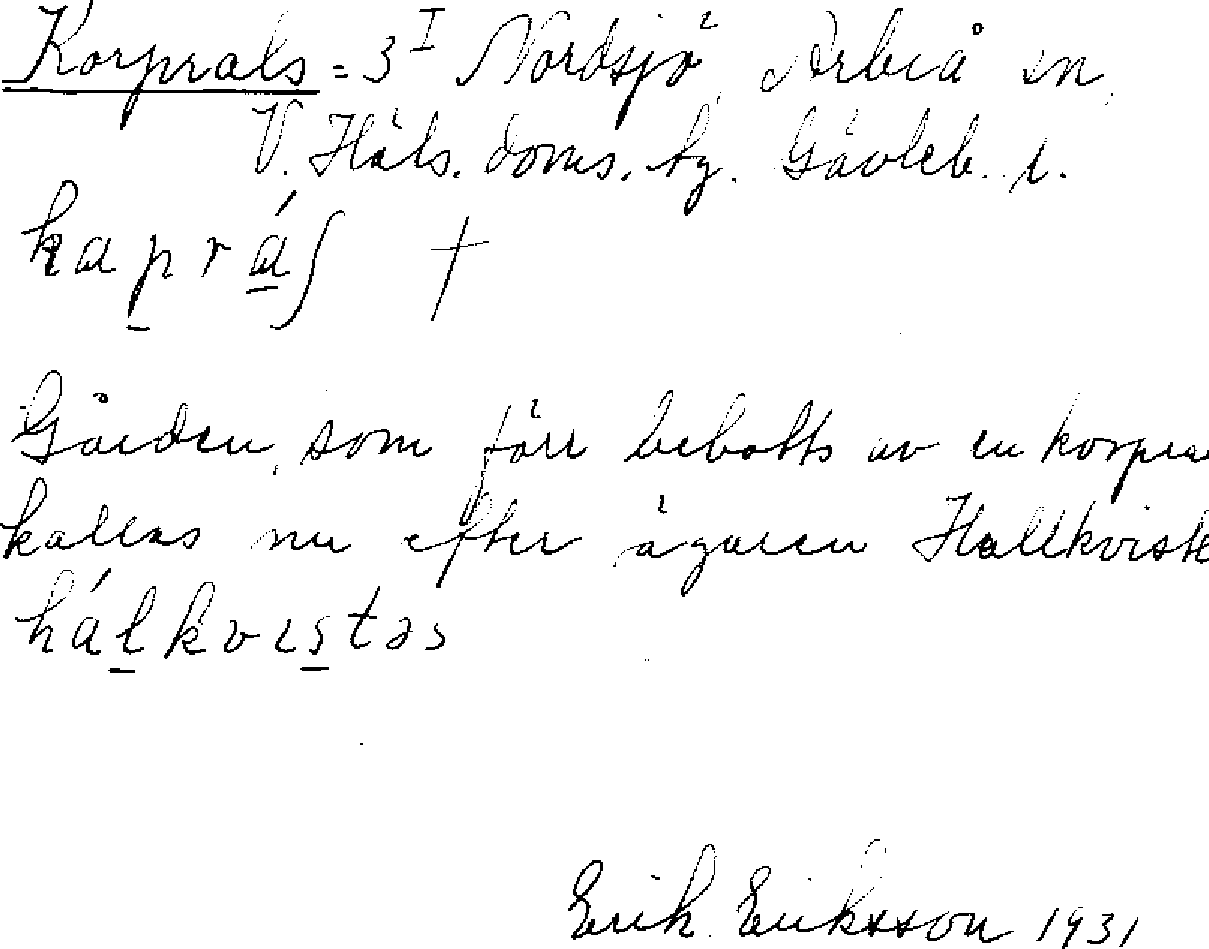 Korprals = 3^I Nordsjö, Arbrå sn,
V. Häls. doms. hg. Gävleb. l.
kaprá∫ †
Gården, som förr bebotts av en korpra
kallas nu efter ägaren Hallkvist
hálkvistəs
Erik Eriksson 1931